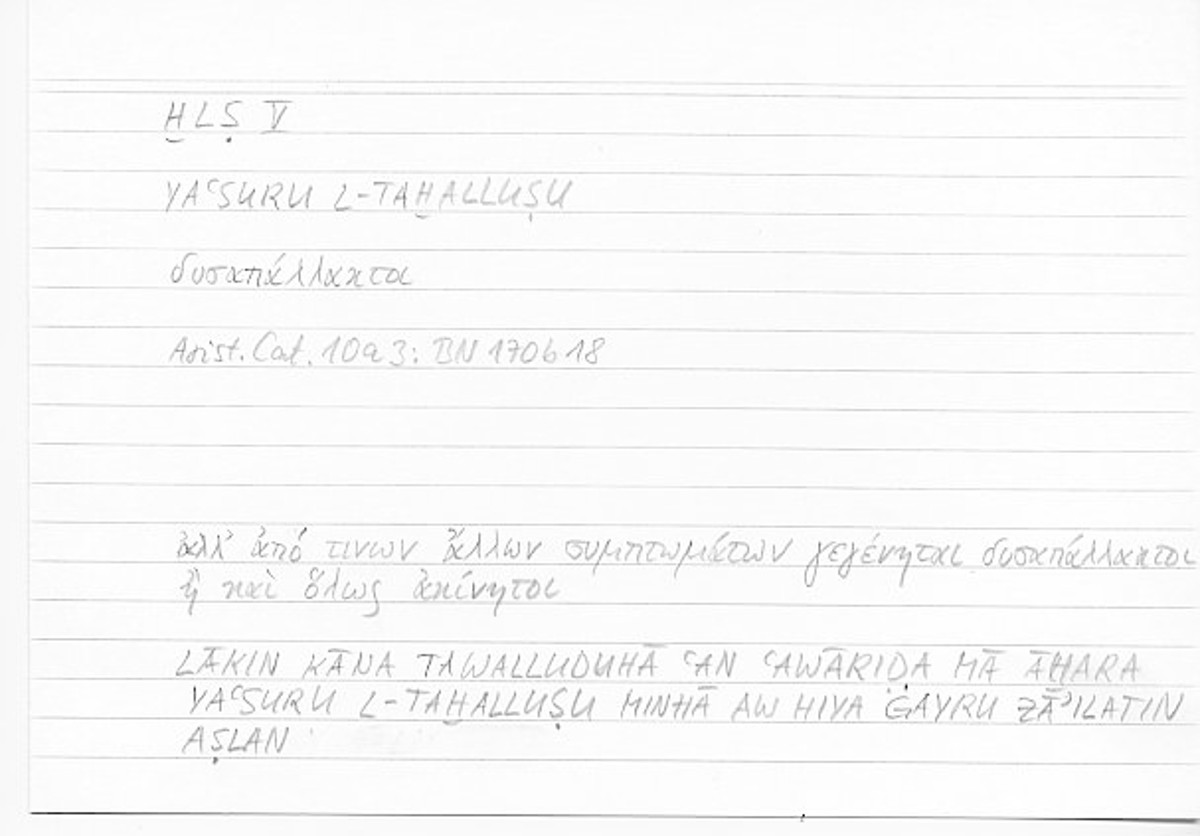 ḪLṢ V
YAʿSURU L-TAḪALLUṢU
δυσαπάλλακτοι
Arist. Cat. 10a3: BN 170b18
ἀλλ' ἀπό τινων ἄλλων συμπτωμάτων γεγένηται δυσαπάλλακτοι
ἢ καὶ ὅλως ἀκίνητοι
LĀKIN KĀNA TAWALLUDUHĀ ʿAN ʿAWĀRIḌA MĀ ĀḪARA
YAʿSURU L-TAḪALLUṢU MINHĀ AW HIYA ĠAYRU ZĀʾILATIN
AṢLAN